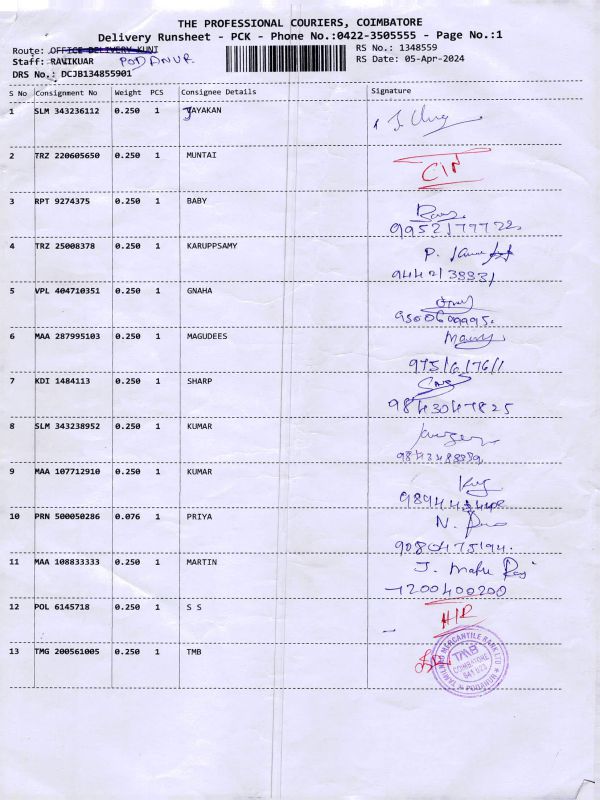 THE PROFESSIONAL COURIERS, COIMBATORE
Delivery Runsheet - PCK - Phone No.:0422-3505555 - Page No.:1
Route: OFFICE DELIVERY KUNI
RS No.: 1348559
Staff: RAVIKUAR PODANUR
RS Date: 05-Apr-2024
DRS No.: DCJB134855901
S No Consignment No Weight PCS Consignee Details Signature
1 SLM 343236112 0.250 1 JAYAKAN
2 TRZ 220605650 0.250 1 MUNTAI
3 RPT 9274375 0.250 1 BABY
9952177722
4 TRZ 25008378 0.250 1 KARUPPSAMY P.
5 VPL 404710351 0.250 1 GNAHA
6 MAA 287995103 0.250 1 MAGUDEES
7 KDI 1484113 0.250 1 SHARP
9843047825
8 SLM 343238952 0.250 1 KUMAR
9 MAA 107712910 0.250 1 KUMAR
10 PRN 500050286 0.076 1 PRIYA N.
9080475194.
11 MAA 108833333 0.250 1 MARTIN J.
7200400200
12 POL 6145718 0.250 1 S S
13 TMG 200561005 0.250 1 TMB
TAMILNAD MERCANTILE BANK LTD
TMB
COIMBATORE
641 023
PODANUR